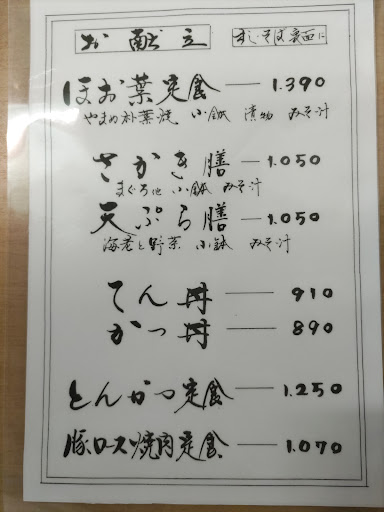 お献立 すし・そば裏面に
ほお葉定食 — 1.390
やまめ朴葉焼 小鉢 漬物 みそ汁
さかき膳 — 1.050
まぐろ他 小鉢 みそ汁
天ぷら膳 — 1.050
海老と野菜 小鉢 みそ汁
てん丼 — 910
かつ丼 — 890
とんかつ定食 — 1.250
豚ロース焼肉定食 — 1.070